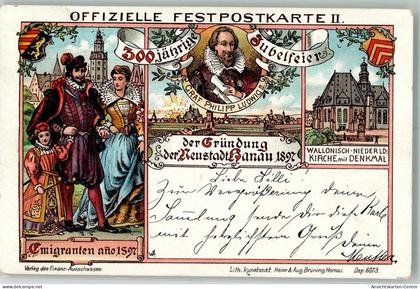 OFFIZIELLE FESTPOSTKARTE II.
300 jährige Jubelfeier
GRAF PHILIPP LUDWIG II.
der Gründung
der Neustadt Hanau 1897
WALLONISCH-NIEDERLD:
KIRCHE mit DENKMAL
Emigranten año 1597
Liebe Lilli
Zur Vergrößerung deiner
Sammlung sende dir diese Karte
mit herzlichstem Gruß dein
Verlag des Finanz-Ausschusses
Lith. Kunstanst. Heinr & Aug Brüning, Hanau.
Dep. 6073.
www.Ansichtskarten-Center.de